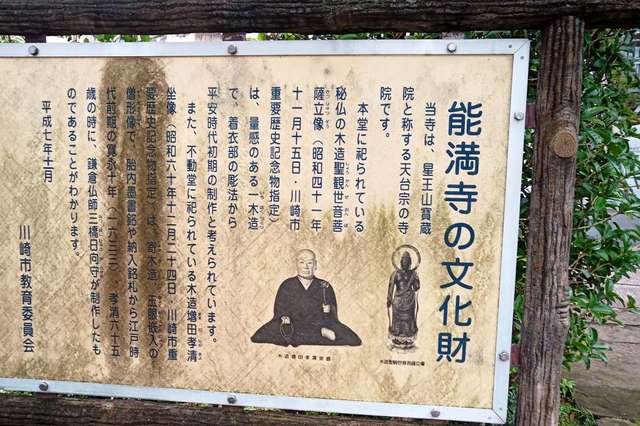 能満寺の文化財
当寺は、星王山寶蔵
院と称する天台宗の寺
院です。
本堂に祀られている
秘仏の木造聖観世音菩
薩立像（昭和四十一年
十一月十五日・川崎市
重要歴史記念物指定）
は、量感のある一木造
で、着衣部の彫法から
平安時代初期の制作と考えられています。
また、不動堂に祀られている木造増田孝清
坐像（昭和六十年十二月二十四日・川崎市重
要歴史記念物指定）は、寄木造、玉眼嵌入の
僧形像で、胎内墨書銘や納入銘札から江戸時
代前期の寛永十年（一六三三）、孝清六十五
歳の時に、鎌倉仏師三橋日向守が制作したも
のであることがわかります。
平成七年十一月
川崎市教育委員会
木造聖観世音菩薩立像
木造増田孝清坐像